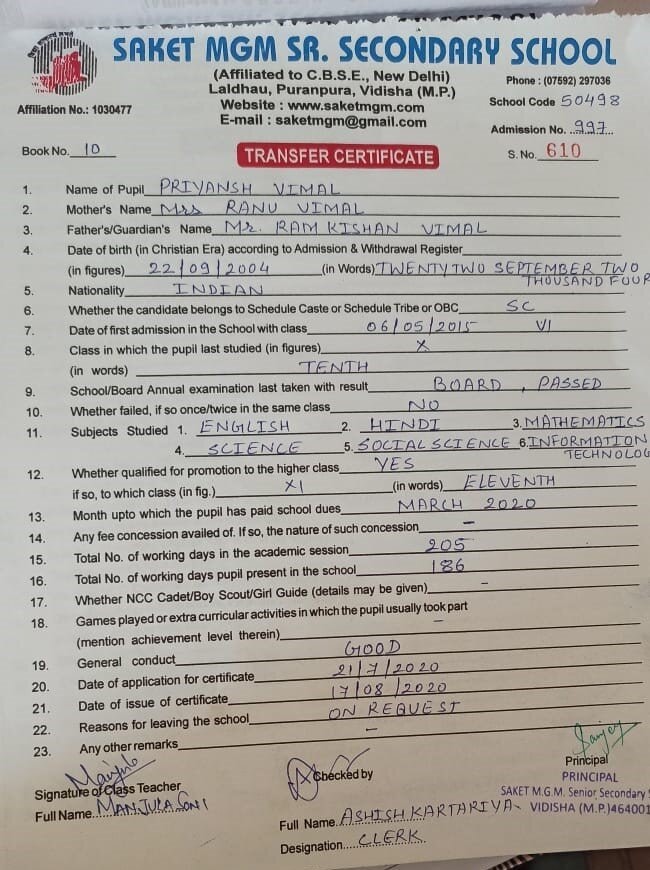 SAKET MGM SR. SECONDARY SCHOOL
(Affiliated to C.B.S.E., New Delhi)
Laldhau, Puranpura, Vidisha (M.P.)
Website : www.saketmgm.com
E-mail : saketmgm@gmail.com
Phone : (07592) 297036
School Code 50498
Affiliation No.: 1030477
Admission No. 997
Book No. 10
TRANSFER CERTIFICATE
S. No. 610
1. Name of Pupil PRIYANSH VIMAL
2. Mother's Name Mrs RANU VIMAL
3. Father's/Guardian's Name Mr. RAM KISHAN VIMAL
4. Date of birth (in Christian Era) according to Admission & Withdrawal Register
(in figures) 22/09/2004 (in Words) TWENTY TWO SEPTEMBER TWO
THOUSAND FOUR
5. Nationality INDIAN
6. Whether the candidate belongs to Schedule Caste or Schedule Tribe or OBC SC
7. Date of first admission in the School with class 06/05/2015 VI
8. Class in which the pupil last studied (in figures) X
(in words) TENTH
9. School/Board Annual examination last taken with result BOARD, PASSED
10. Whether failed, if so once/twice in the same class NO
11. Subjects Studied 1. ENGLISH 2. HINDI 3. MATHEMATICS
4. SCIENCE 5. SOCIAL SCIENCE 6. INFORMATION
TECHNOLOG
12. Whether qualified for promotion to the higher class YES
if so, to which class (in fig.) XI (in words) ELEVENTH
13. Month upto which the pupil has paid school dues MARCH 2020
14. Any fee concession availed of. If so, the nature of such concession –
15. Total No. of working days in the academic session 205
16. Total No. of working days pupil present in the school 186
17. Whether NCC Cadet/Boy Scout/Girl Guide (details may be given) –
18. Games played or extra curricular activities in which the pupil usually took part
(mention achievement level therein) –
19. General conduct GOOD
20. Date of application for certificate 21/7/2020
21. Date of issue of certificate 17/08/2020
22. Reasons for leaving the school ON REQUEST
23. Any other remarks –
Manjula
Signature of Class Teacher
Full Name MANJULA SONI
Checked by
Full Name ASHISH KARTARIYA
Designation CLERK
Sanjey
Principal
PRINCIPAL
SAKET M.G.M. Senior Secondary
VIDISHA (M.P.) 464001